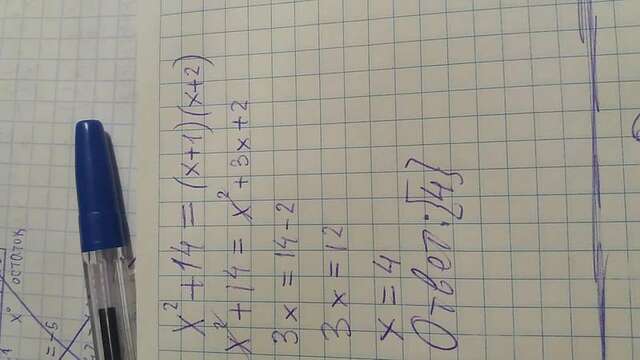 1
x° остаток
= -5
x² + 14 = (x+1)(x+2)
x² + 14 = x² + 3x + 2
3x = 14 - 2
3x = 12
x = 4
Ответ: {4}